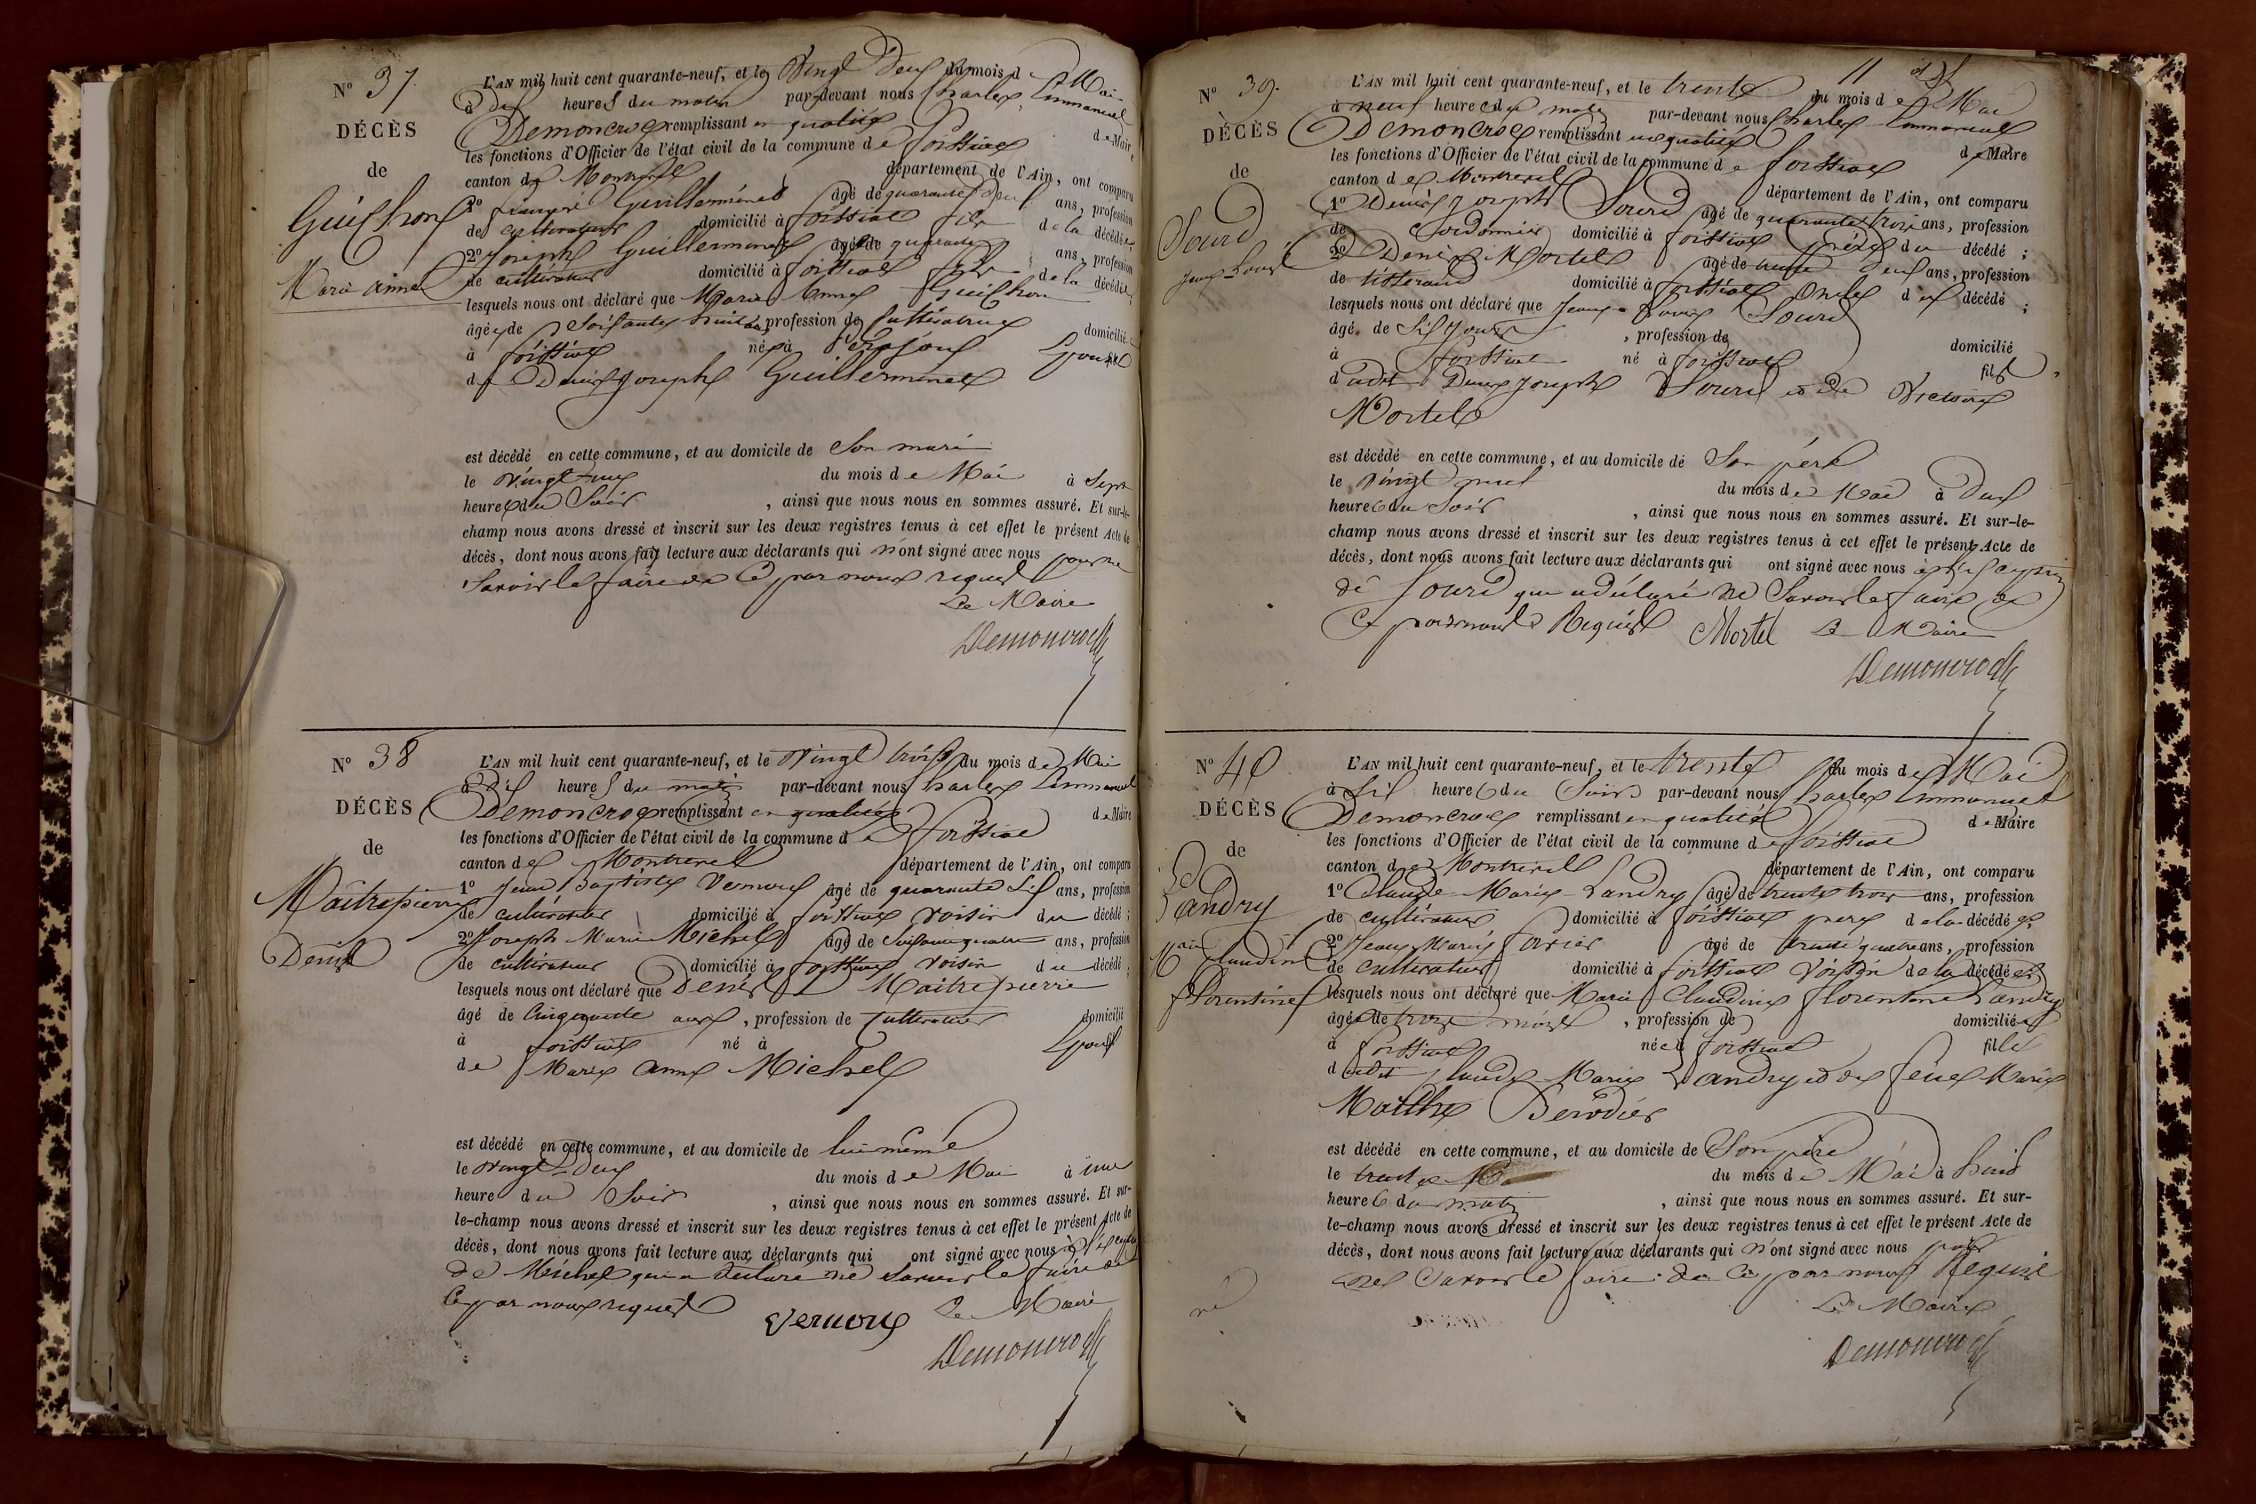 N° 37
DÉCÈS
de
Guichon
Marie anne
L'AN mil huit cent quarante-neuf, et le Vingt Deux du mois de Mai
à dix heures du matin par-devant nous Charles Emmanuel
Demoncroc remplissant en qualité de Maire
les fonctions d'Officier de l'état civil de la commune de foissiat
canton de Montrevel département de l'Ain, ont comparu
1° françois Guillerminet âgé de quarante deux ans, profession
de cultivateur domicilié à foissiat fils de la décédée
2° Joseph Guillerminet âgé de quarante ans, profession
de cultivateur domicilié à foissiat fils de la décédée;
lesquels nous ont déclaré que Marie Anne Guichon
âgée de Soixante huit ans, profession de cultivatrice domiciliée
à foissiat née à Epouse
de Denis Joseph Guillerminet
est décédé en cette commune, et au domicile de Son mari
le vingt un du mois de Mai à Sept
heures du Soir, ainsi que nous nous en sommes assuré. Et sur-le-
champ nous avons dressé et inscrit sur les deux registres tenus à cet effet le présent Acte de
décès, dont nous avons fait lecture aux déclarants qui n'ont signé avec nous pour ne
Savoir le faire de ce par nous requis
Le Maire
Demoncroc
N° 38
DÉCÈS
de
Maitrepierre
Denis
L'AN mil huit cent quarante-neuf, et le Vingt trois du mois de Mai
à dix heures du matin par-devant nous Charles Emmanuel
Demoncroc remplissant en qualité de Maire
les fonctions d'Officier de l'état civil de la commune de foissiat
canton de Montrevel département de l'Ain, ont comparu
1° Jean Baptiste Vernoux âgé de quarante Six ans, profession
de cultivateur domicilié à foissiat voisin du décédé;
2° Joseph Marie Michel âgé de Soixante quatre ans, profession
de cultivateur domicilié à foissiat voisin du décédé;
lesquels nous ont déclaré que Denis Maitrepierre
âgé de Cinquante ans, profession de cultivateur domicilié
à foissiat né à Epoux
de Marie Anne Michel
est décédé en cette commune, et au domicile de lui même
le vingt-Deux du mois de Mai à une
heure du Soir, ainsi que nous nous en sommes assuré. Et sur-
le-champ nous avons dressé et inscrit sur les deux registres tenus à cet effet le présent Acte de
décès, dont nous avons fait lecture aux déclarants qui ont signé avec nous à l'exception
de Michel qui a déclaré ne Savoir le faire de
Ce par nous requis Vernoux Le Maire
Demoncroc
11
N° 39.
DÉCÈS
de
Sourd
Jean Louis
L'AN mil huit cent quarante-neuf, et le trente du mois de Mai
à neuf heures du matin par-devant nous Charles Emmanuel
Demoncroc remplissant en qualité de Maire
les fonctions d'Officier de l'état civil de la commune de foissiat
canton de Montrevel département de l'Ain, ont comparu
1° Denis Joseph Sourd âgé de quarante trois ans, profession
de Cordonnier domicilié à foissiat père du décédé;
2° Denis Mortel âgé de trente deux ans, profession
de tisserand domicilié à foissiat Oncle du décédé;
lesquels nous ont déclaré que Jean-Louis Sourd
âgé de Six jours, profession de domicilié
à foissiat né à foissiat fils
dudit Denis Joseph Sourd et de Victoire
Mortel
est décédé en cette commune, et au domicile de Son père
le vingt neuf du mois de Mai à Deux
heures du Soir, ainsi que nous nous en sommes assuré. Et sur-le-
champ nous avons dressé et inscrit sur les deux registres tenus à cet effet le présent Acte de
décès, dont nous avons fait lecture aux déclarants qui ont signé avec nous à l'exception
de Sourd qui a déclaré ne Savoir le faire de
Ce par nous Requis Mortel Le Maire
Demoncroc
N° 40
DÉCÈS
de
Landry
Marie Claudine
florentine
L'AN mil huit cent quarante-neuf, et le trente du mois de Mai
à Six heures du Soir par-devant nous Charles Emmanuel
Demoncroc remplissant en qualité de Maire
les fonctions d'Officier de l'état civil de la commune de foissiat
canton de Montrevel département de l'Ain, ont comparu
1° Claude Marie Landry âgé de trente trois ans, profession
de cultivateur domicilié à foissiat père de la décédée
2° Jean Marie âgé de trente quatre ans, profession
de cultivateur domicilié à foissiat Voisin de la décédée
lesquels nous ont déclaré que Marie Claudine florentine Landry
âgée de treize mois, profession de domiciliée
à foissiat née à foissiat fille
dudit Claude Marie Landry et de feue Marie
Marthe Berodier
est décédé en cette commune, et au domicile de Son père
le trente du mois de Mai à huit
heures du matin, ainsi que nous nous en sommes assuré. Et sur-
le-champ nous avons dressé et inscrit sur les deux registres tenus à cet effet le présent Acte de
décès, dont nous avons fait lecture aux déclarants qui n'ont signé avec nous pour
ne Savoir le faire de Ce par nous Requis
Le Maire
Demoncroc